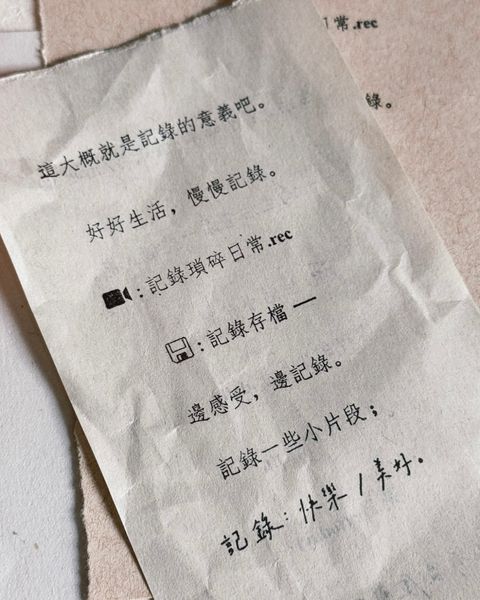 這大概就是記錄的意義吧。
好好生活，慢慢記錄。
：記錄瑣碎日常.rec
：記錄存檔 —
邊感受，邊記錄。
記錄一些小片段；
記錄：快樂 / 美好。
常.rec
錄。